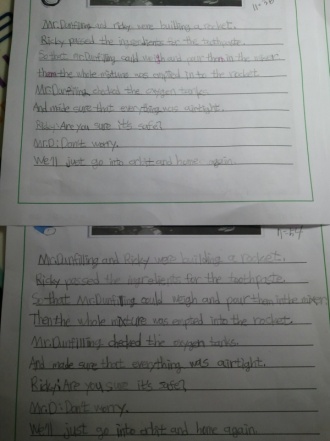 Mr.Dunfilling and Ricky were building a rocket.
Ricky passed the ingredients for the toothpaste.
So that Mr.Dunfilling could weigh and pour them in the mixer
then the whole mixture was emptied into the rocket.
Mr.Dunfilling checked the oxygen tanks.
And made sure that everything was airtight.
Ricky: Are you sure it's safe?
Mr.D: Don't worry.
We'll just go into orbit and home again.
Mr.Dunfilling and Ricky were building a rocket.
Ricky passed the ingredients for the toothpaste.
So that Mr.Dunfilling could weigh and pour them in the mixer
Then the whole mixture was emptied into the rocket.
Mr.Dunfilling checked the oxygen tanks.
And made sure that everything was airtight.
Ricky: Are you sure it's safe?
Mr.D: Don't worry.
We'll just go into orbit and home again.